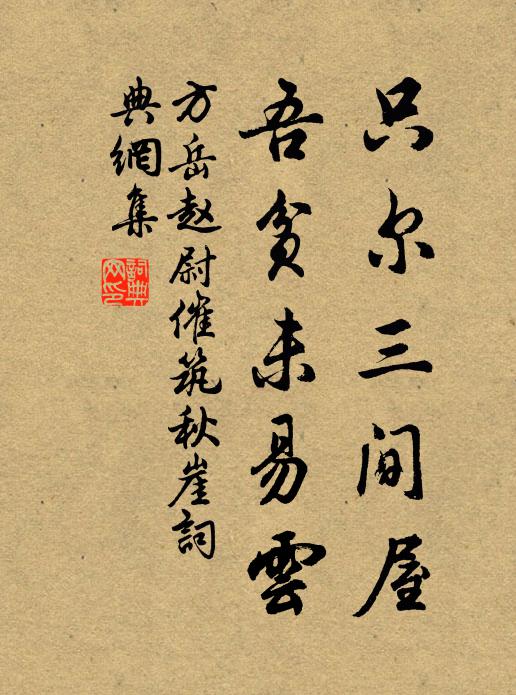 只尔三间屋
吾贫未易雲
方岳赵尉催筑秋崖詞
典網集
詞典网印